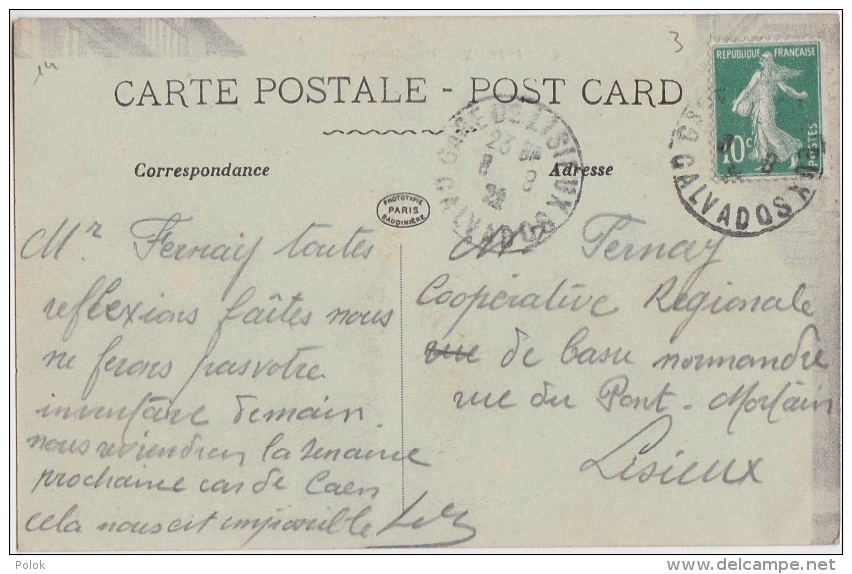 14
3
CARTE POSTALE - POST CARD
Correspondance
Adresse
RÉPUBLIQUE FRANÇAISE
10c
POSTES
GARE DE LISIEUX
CALVADOS
23
8
GARE
CALVADOS
8
PHOTOTYPIE
PARIS
BAUDINIÈRE
Mr Fernay toutes
reflexions faîtes nous
ne ferons pas votre
inventaire demain.
nous reviendrons la semaine
prochaine car de Caen
cela nous est impossible
Mr Fernay
Coopérative Regionale
rue de basse normandie
rue du Pont-Mortain
Lisieux
Polok
delcampe.net